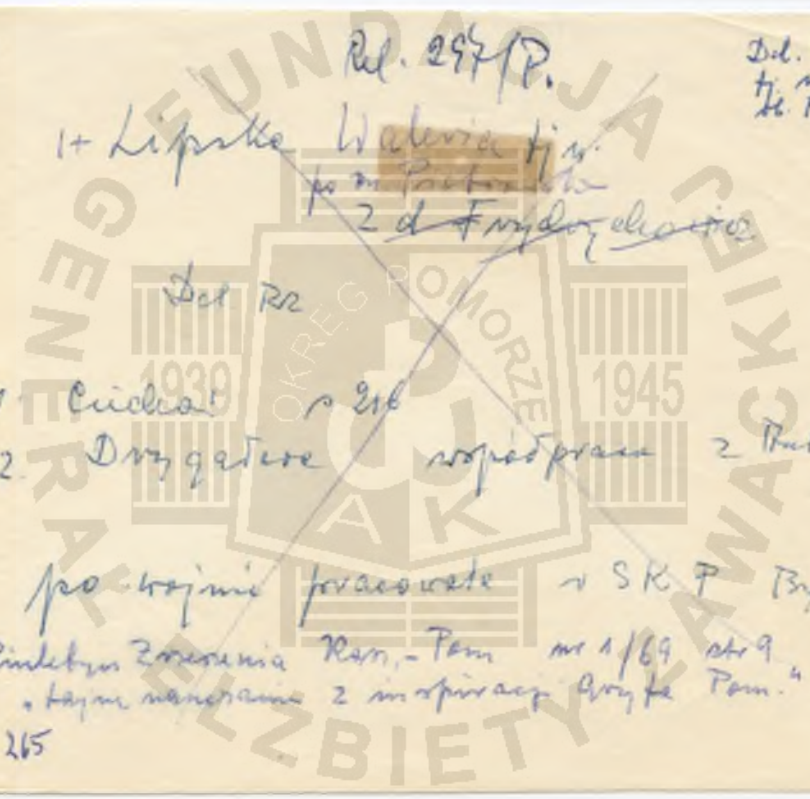 Rel. 297/P.
Del.
tj.
1+ Lipska Waleria tj. w.
po m.
z d Frydrychowicz
Del RR
Ciechoń s 216
2. Drygałowa współpraca z
po wojnie pracowała w SKP
Zrzeszenia Kasz.-Pom nr 1/69 str 9
"tajne nauczanie z inspiracji Gryfa Pom."
265
FUNDACJA
GENERAŁ ELŻBIETY ZAWACKIEJ
OKRĘG POMORZE
1939
1945
AK